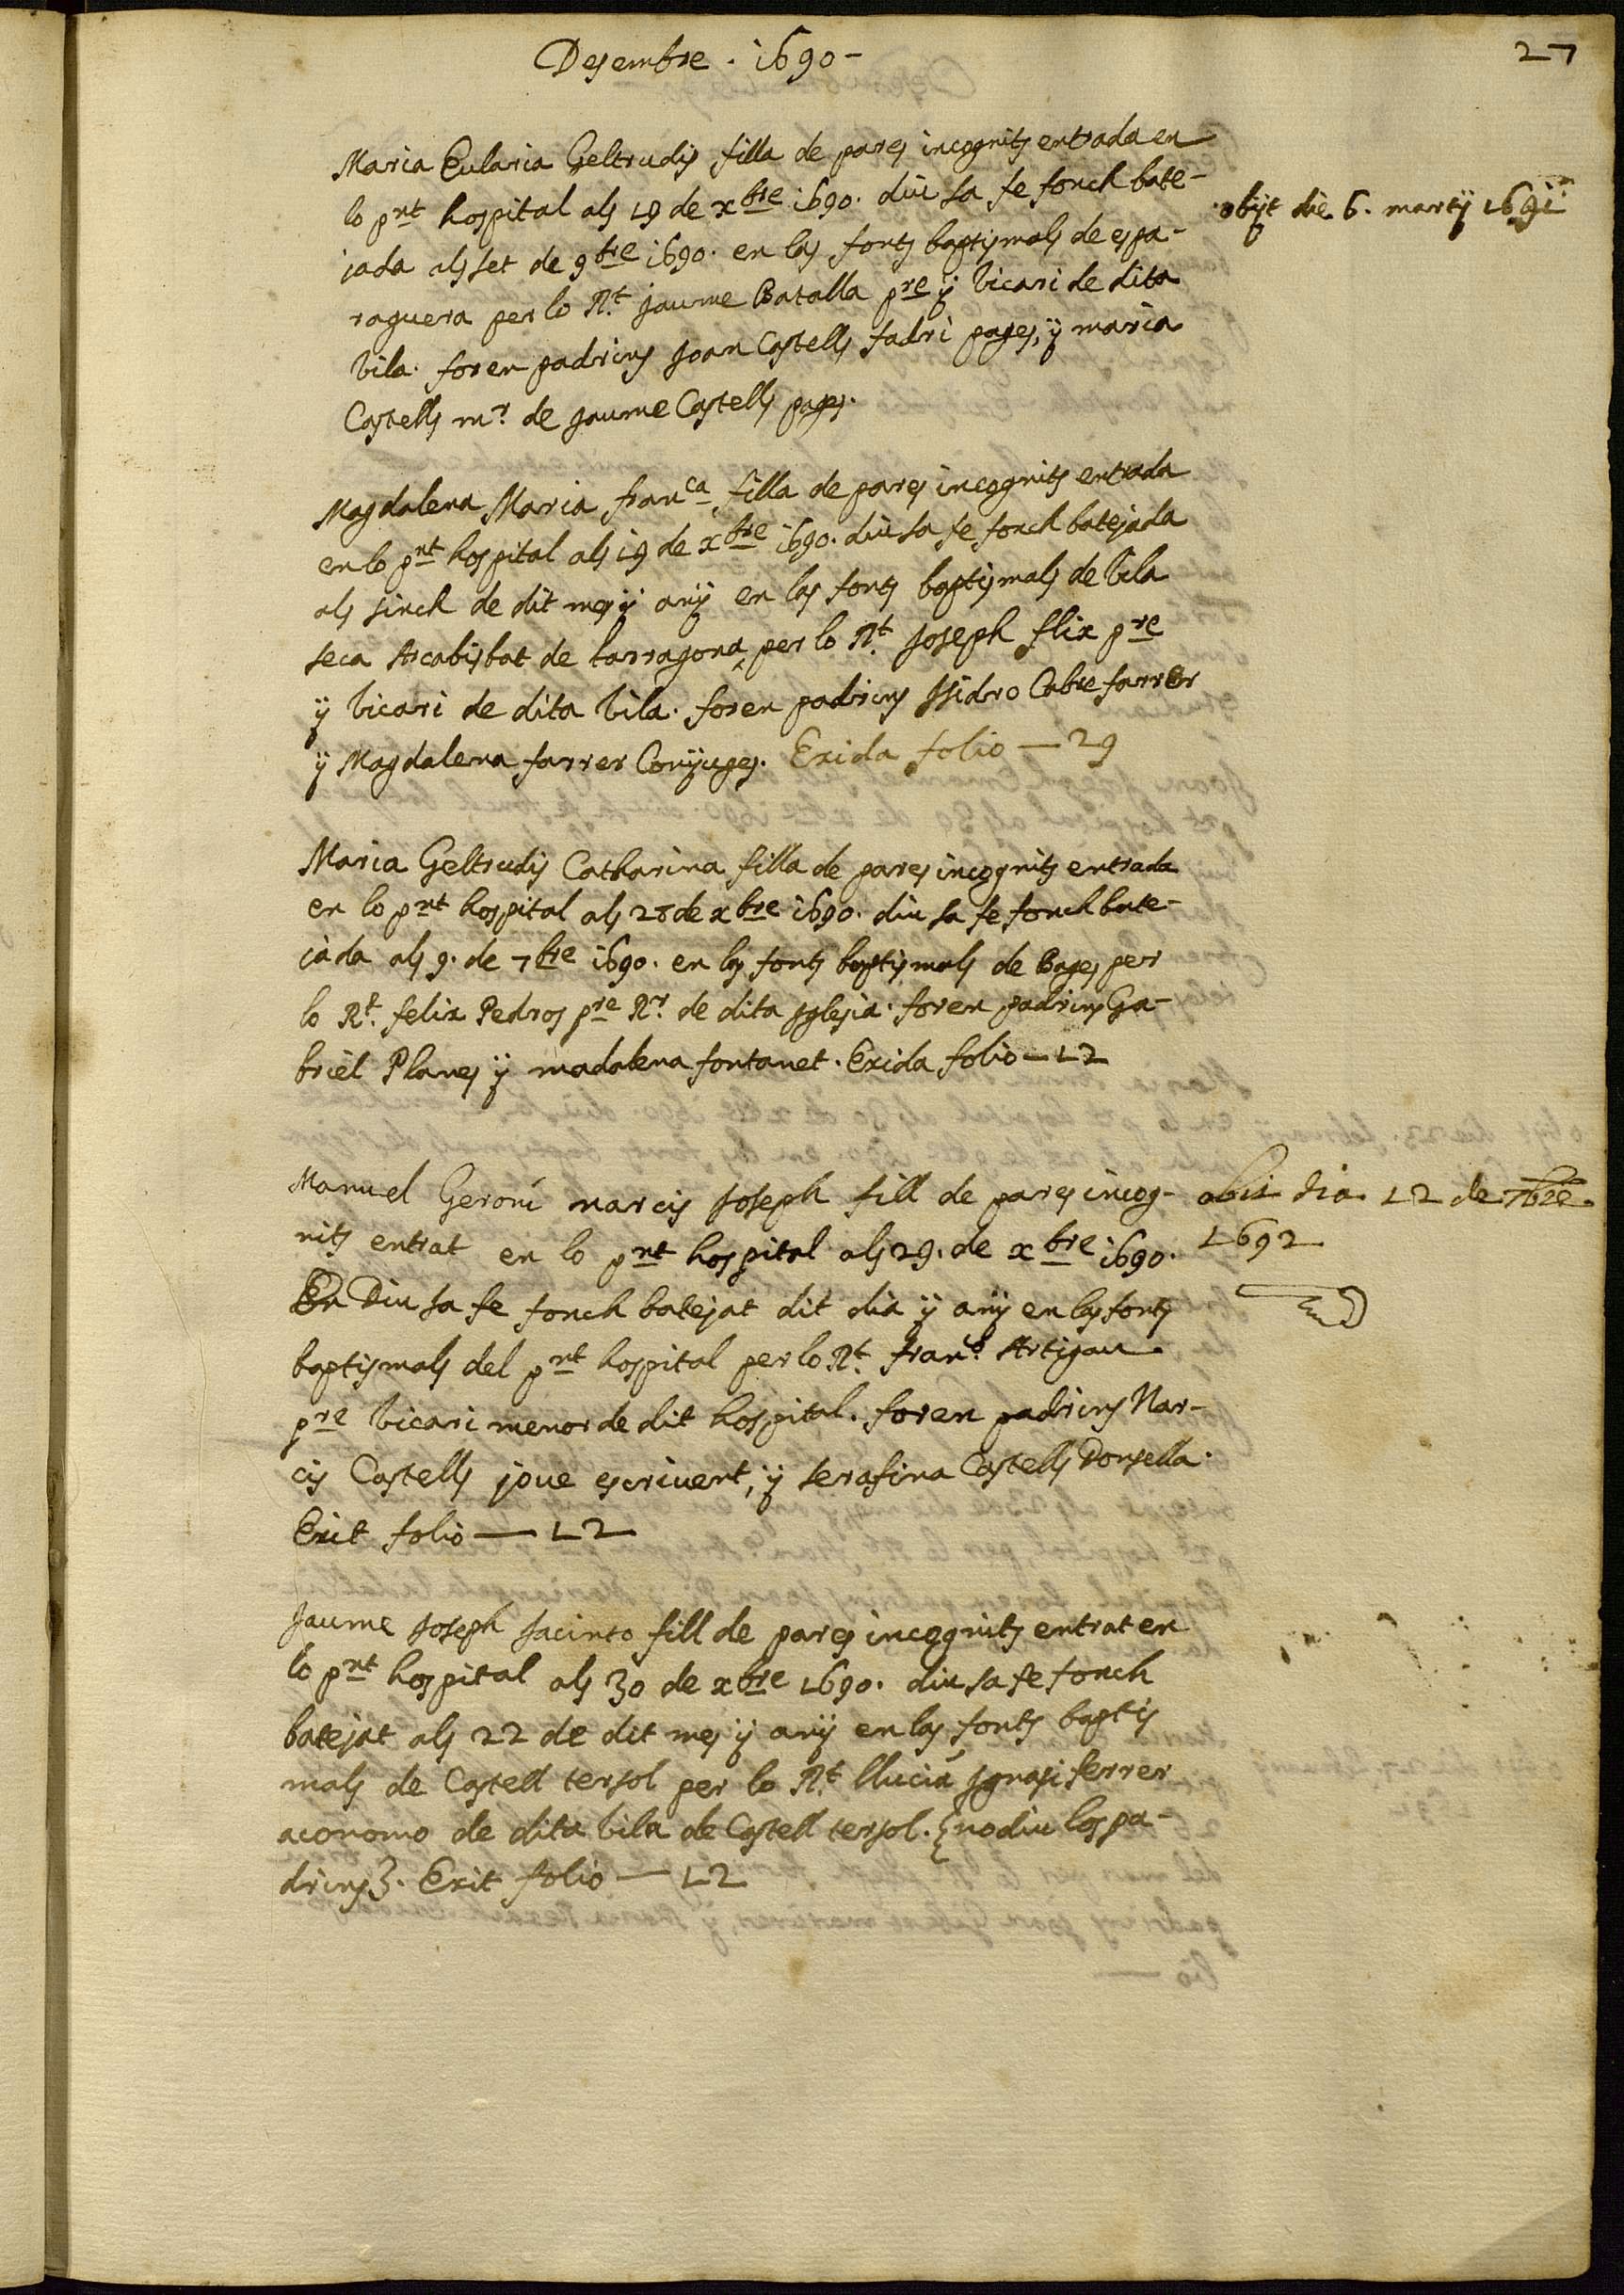 Desembre . 1690 –
27
Maria Eularia Geltrudis filla de pares incognits entrada en
lo pnt hospital als 19 de xbre 1690. diu sa fe fonch bate-
jada als set de 9bre 1690. en las fonts baptismals de espa-
raguera per lo Rt. Jaume Batalla pre ÿ vicari de dita
vila. foren padrins Joan Castells fadri pages, ÿ maria
Castells mr. de Jaume Castells pages.
obÿt die 6. martÿ 1691
Magdalena Maria franca filla de pares incognits entrada
en lo pnt hospital als 19 de xbre 1690. diu sa fe fonch batejada
als sinch de dit mes ÿ anÿ en las fonts baptismals de vila
seca Arcabisbat de tarragona, per lo Rt. Joseph flix pre
ÿ vicari de dita vila. foren padrins Isidro Cabre farrer
ÿ Magdalena farrer Conÿuges. Exida folio — 29
Maria Geltrudis Catharina filla de pares incognits entrada
en lo pnt hospital als 28 de xbre 1690. diu sa fe fonch bate-
jada als 9. de 7bre 1690. en las fonts baptismals de Bages per
lo Rt. felix Pedros pre Rr. de dita Iglesia. foren padrins Ga-
briel Planes ÿ madalena fontanet. Exida folio — 12
Manuel Geroni narcis Joseph fill de pares incog-
nits entrat en lo pnt hospital als 29. de xbre 1690.
Diu sa fe fonch batejat dit dia ÿ anÿ en las fonts
baptismals del pnt hospital per lo Rt. franc. Artigau
pre vicari menor de dit hospital. foren padrins Nar-
cis Castells jove escrivent, ÿ serafina Castells Donsella.
Exit folio — 12
obit dia 12 de 7bre
1692
Jaume Joseph Jacinto fill de pares incognits entrat en
lo pnt hospital als 30 de xbre 1690. diu sa fe fonch
batejat als 22 de dit mes ÿ anÿ en las fonts baptis
mals de Castell tersol per lo Rt. llucià Ignasi ferrer
aconomo de dita vila de Castell tersol. {no diu los pa-
drins}. Exit folio — 12